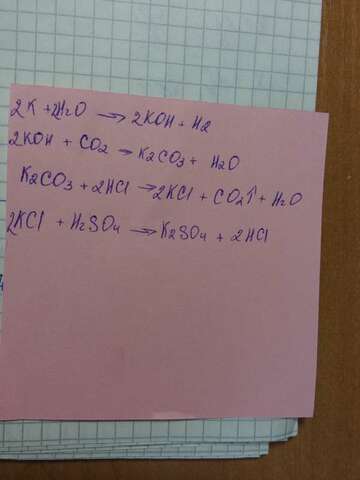 2K + 2H2O → 2KOH + H2
2KOH + CO2 → K2CO3 + H2O
K2CO3 + 2HCl → 2KCl + CO2↑ + H2O
2KCl + H2SO4 → K2SO4 + 2HCl